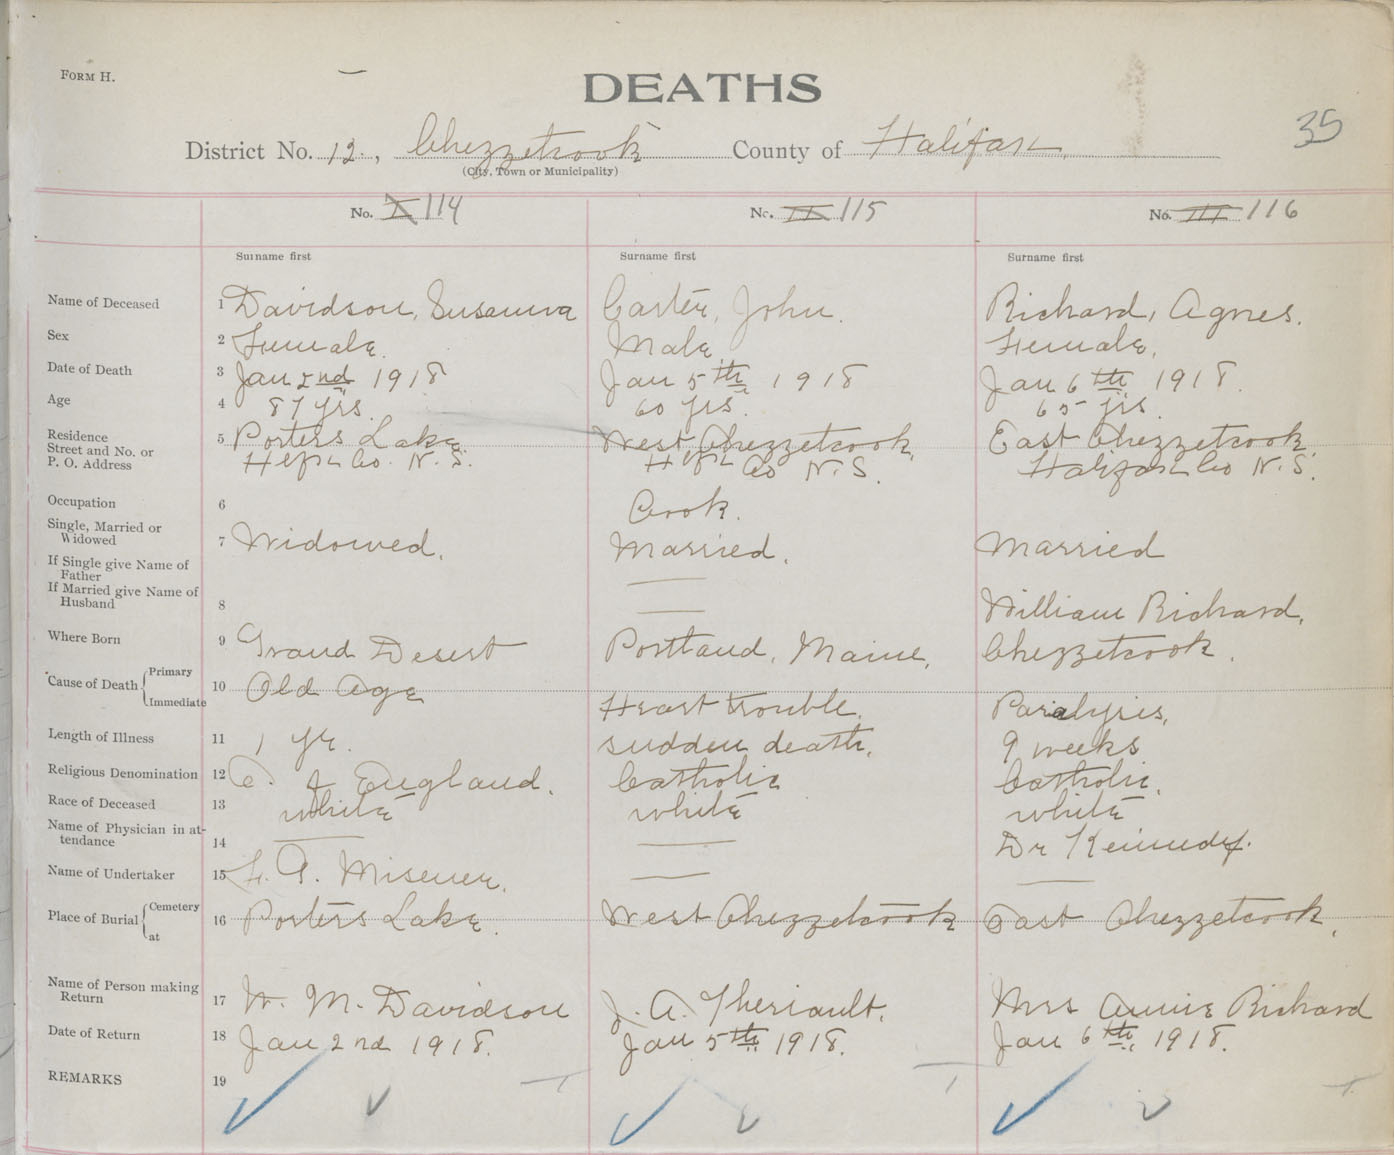 FORM H.
DEATHS
35
District No. 12, Chezzetcook County of Halifax
(City, Town or Municipality)
No. I 114 No. II 115 No. III 116
Surname first Surname first Surname first
Name of Deceased 1 Davidson, Susanna Carter, John. Richard, Agnes.
Sex 2 Female. Male Female.
Date of Death 3 Jan 2nd 1918 Jan 5th 1918 Jan 6th 1918.
Age 4 87 yrs. 60 yrs. 65 yrs.
Residence 5 Porters Lake West Chezzetcook, East Chezzetcook.
Street and No. or
P. O. Address Hfx Co. N.S. Hfx Co N.S. Halifax Co N.S.
Occupation 6 Cook.
Single, Married or
Widowed 7 Widowed. Married. Married
If Single give Name of
Father
If Married give Name of
Husband 8 William Richard,
Where Born 9 Grand Desert Portland, Maine, Chezzetcook.
Cause of Death Primary 10 Old Age
Immediate Heart trouble. Paralysis,
Length of Illness 11 1 yr. sudden death. 9 weeks
Religious Denomination 12 C. of England. Catholic Catholic.
Race of Deceased 13 white white white
Name of Physician in at-
tendance 14 Dr Kennedy.
Name of Undertaker 15 F. A. Misener.
Place of Burial Cemetery 16 Porters Lake. West Chezzetcook East Chezzetcook.
at
Name of Person making
Return 17 W. M. Davidson J. A. Theriault. Mrs Annie Richard
Date of Return 18 Jan 2nd 1918. Jan 5th 1918. Jan 6th 1918.
REMARKS 19